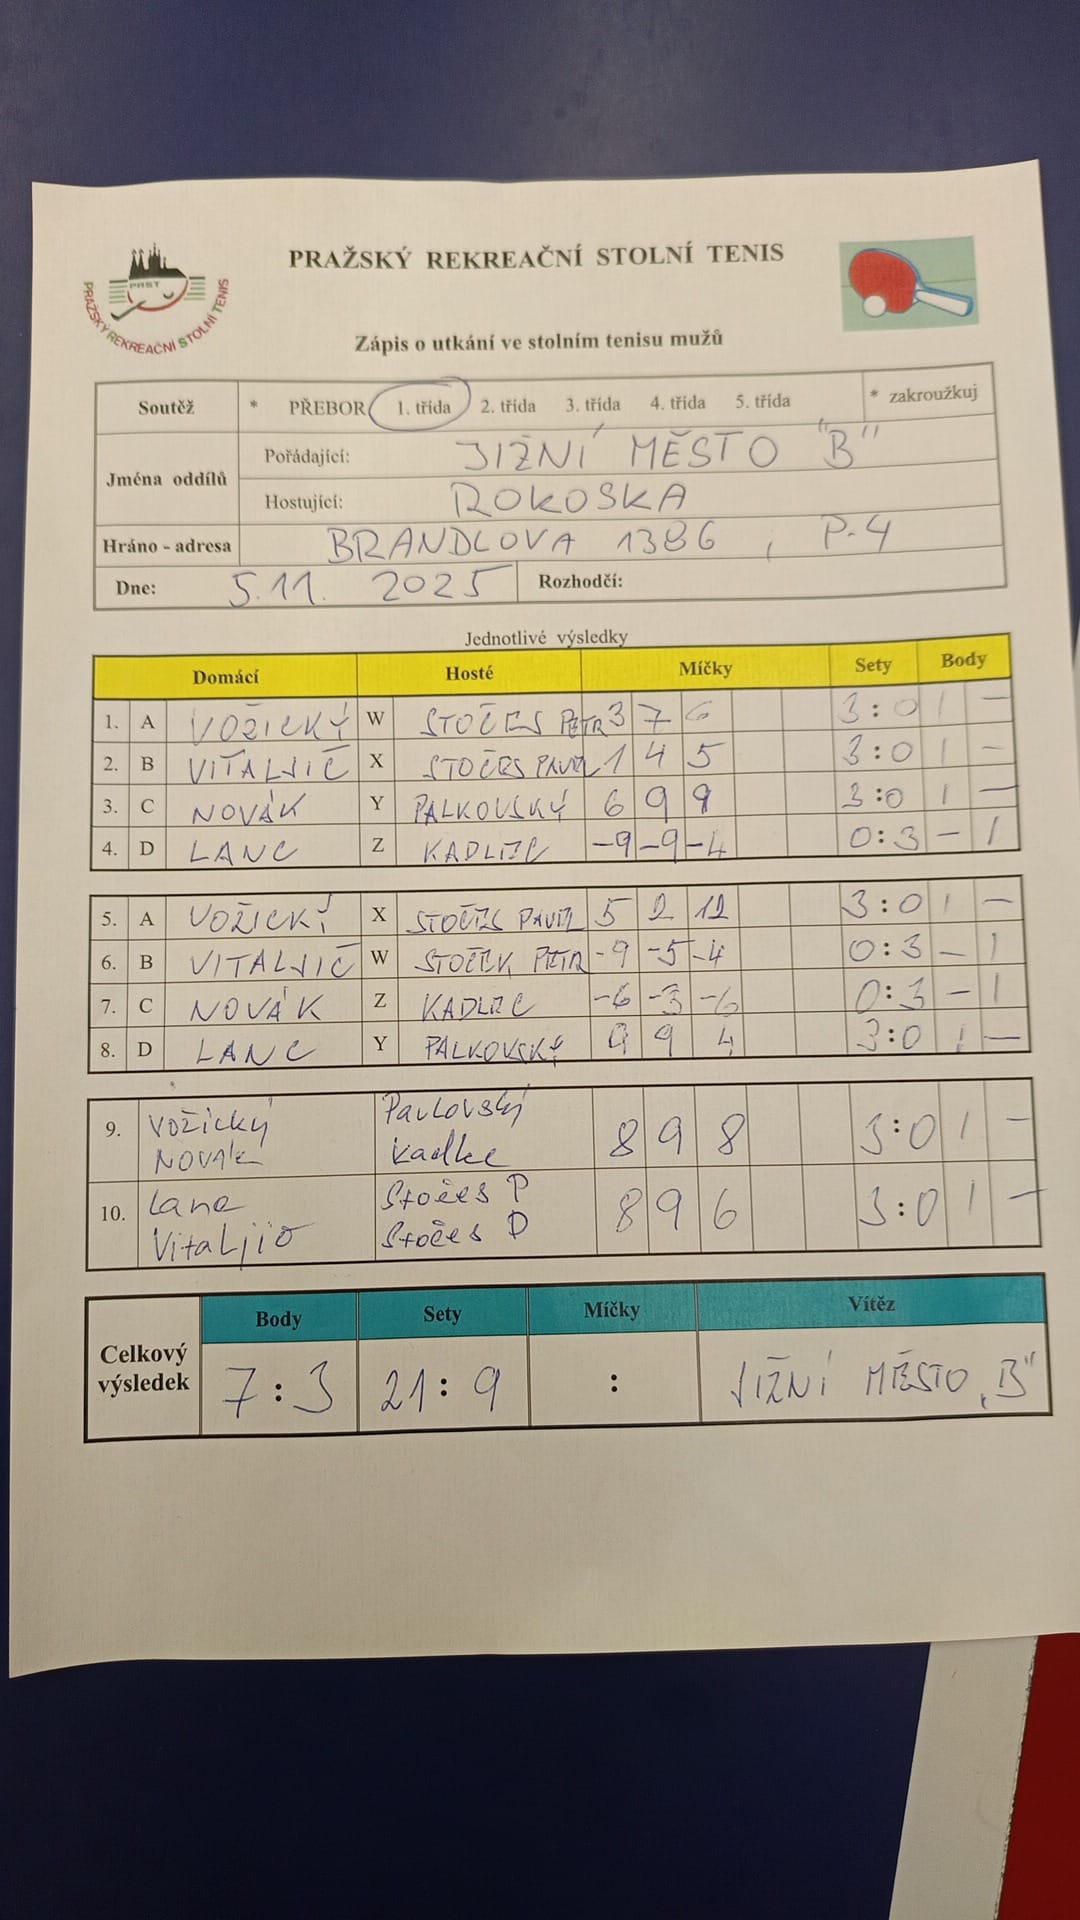 PRAŽSKÝ REKREAČNÍ STOLNÍ TENIS
PRST
PRAŽSKÝ REKREAČNÍ STOLNÍ TENIS
Zápis o utkání ve stolním tenisu mužů
Soutěž * PŘEBOR 1. třída 2. třída 3. třída 4. třída 5. třída * zakroužkuj
Jména oddílů
Pořádající: JIŽNÍ MĚSTO "B"
Hostující: ROKOSKA
Hráno - adresa BRANDLOVA 1386, P-4
Dne: 5.11. 2025 Rozhodčí:
Jednotlivé výsledky
Domácí Hosté Míčky Sety Body
1. A VOŽICKÝ W STOČES PETR 3 7 6 3:0 1 –
2. B VITALJIČ X STOČES PAVEL 1 4 5 3:0 1 –
3. C NOVÁK Y PALKOVSKÝ 6 9 9 3:0 1 –
4. D LANC Z KADLEC -9 -9 -4 0:3 – 1
5. A VOŽICKÝ X STOČES PAVEL 5 2 12 3:0 1 –
6. B VITALJIČ W STOČEK PETR -9 -5 -4 0:3 – 1
7. C NOVÁK Z KADLEC -6 -3 -6 0:3 – 1
8. D LANC Y PALKOVSKÝ 9 9 4 3:0 1 –
9. Vožický Pavlovský 8 9 8 3:0 1 –
NOVÁK Kadlec
10. Lanc Stočes P 8 9 6 3:0 1 –
Vitaljič Stočes P
Celkový výsledek
Body Sety Míčky Vítěz
7:3 21:9 : JIŽNÍ MĚSTO „B"